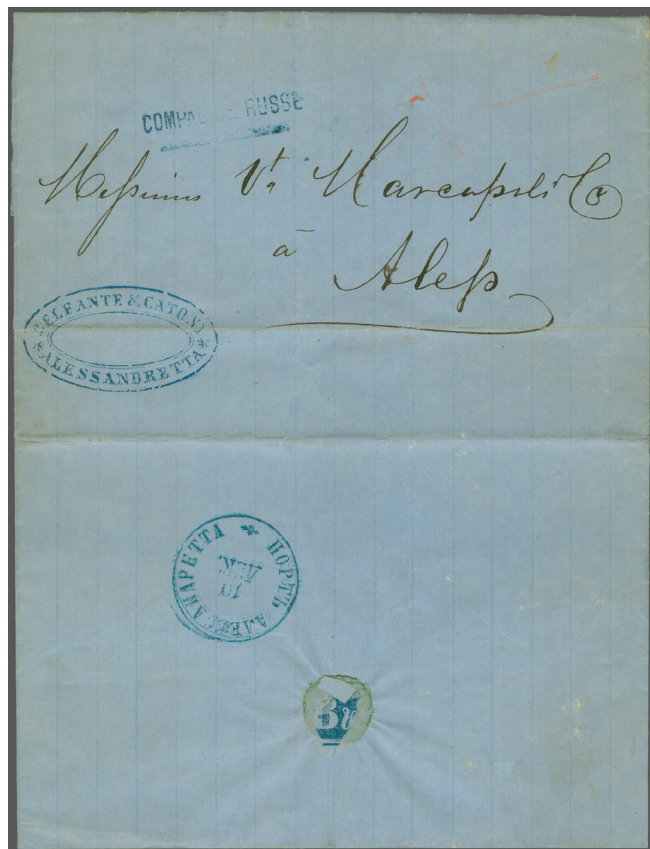 COMPAGNIE RUSSE
Messieurs Vt. Marcopoli Co
à
Alep
BELFANTE & CATONI
ALESSANDRETTA
ПОРТЪ АЛЕКСАНДРЕТТА
10
ДЕК